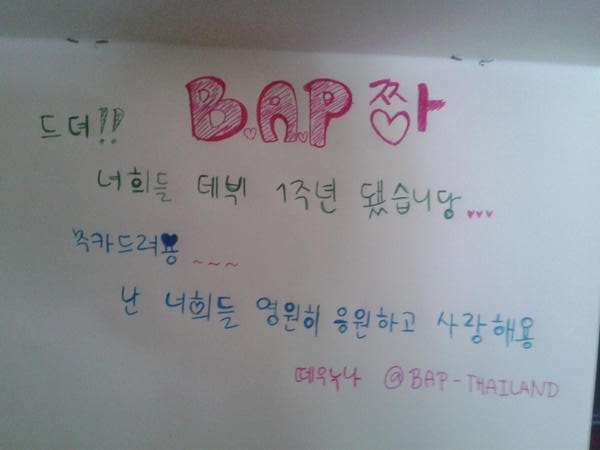 B.A.P 짱
드뎌!!
너희들 데뷔 1주년 됐습니당...
축카드려용 ~~~
난 너희들 영원히 응원하고 사랑해용
떼우누나 @BAP-THAILAND